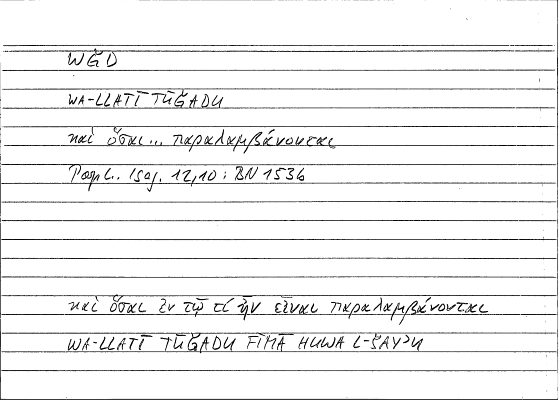 WǦD
WA-LLATĪ TŪǦADU
καὶ ὅσαι... παραλαμβάνονται
Porph.. Isag. 12,10 : BN 153b
καὶ ὅσαι ἐν τῷ τί ἦν εἶναι παραλαμβάνονται
WA-LLATĪ TŪǦADU FĪMĀ HUWA L-ŠAYʾU